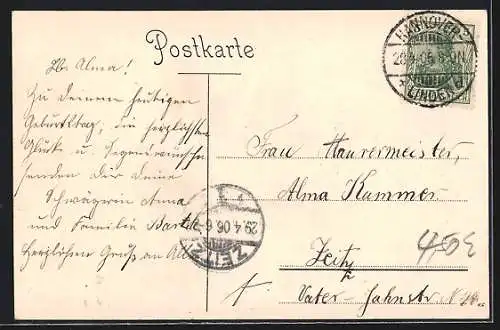 Postkarte
HANNOVER 2
28.4.06. 8-9N
* LINDEN *
Lb. Alma!
Zu Deinem heutigen
Geburtstag, die herzlichsten
Glück u. Segenswünsche
senden Dir Deine
Schwägerin Anna
und Familie
Herzlichen Gruß an All
Frau Maurermeister,
Alma Kummer
Zeitz
Vater-Jahnstr. N
29.4.06. 6-7
ZEITZ